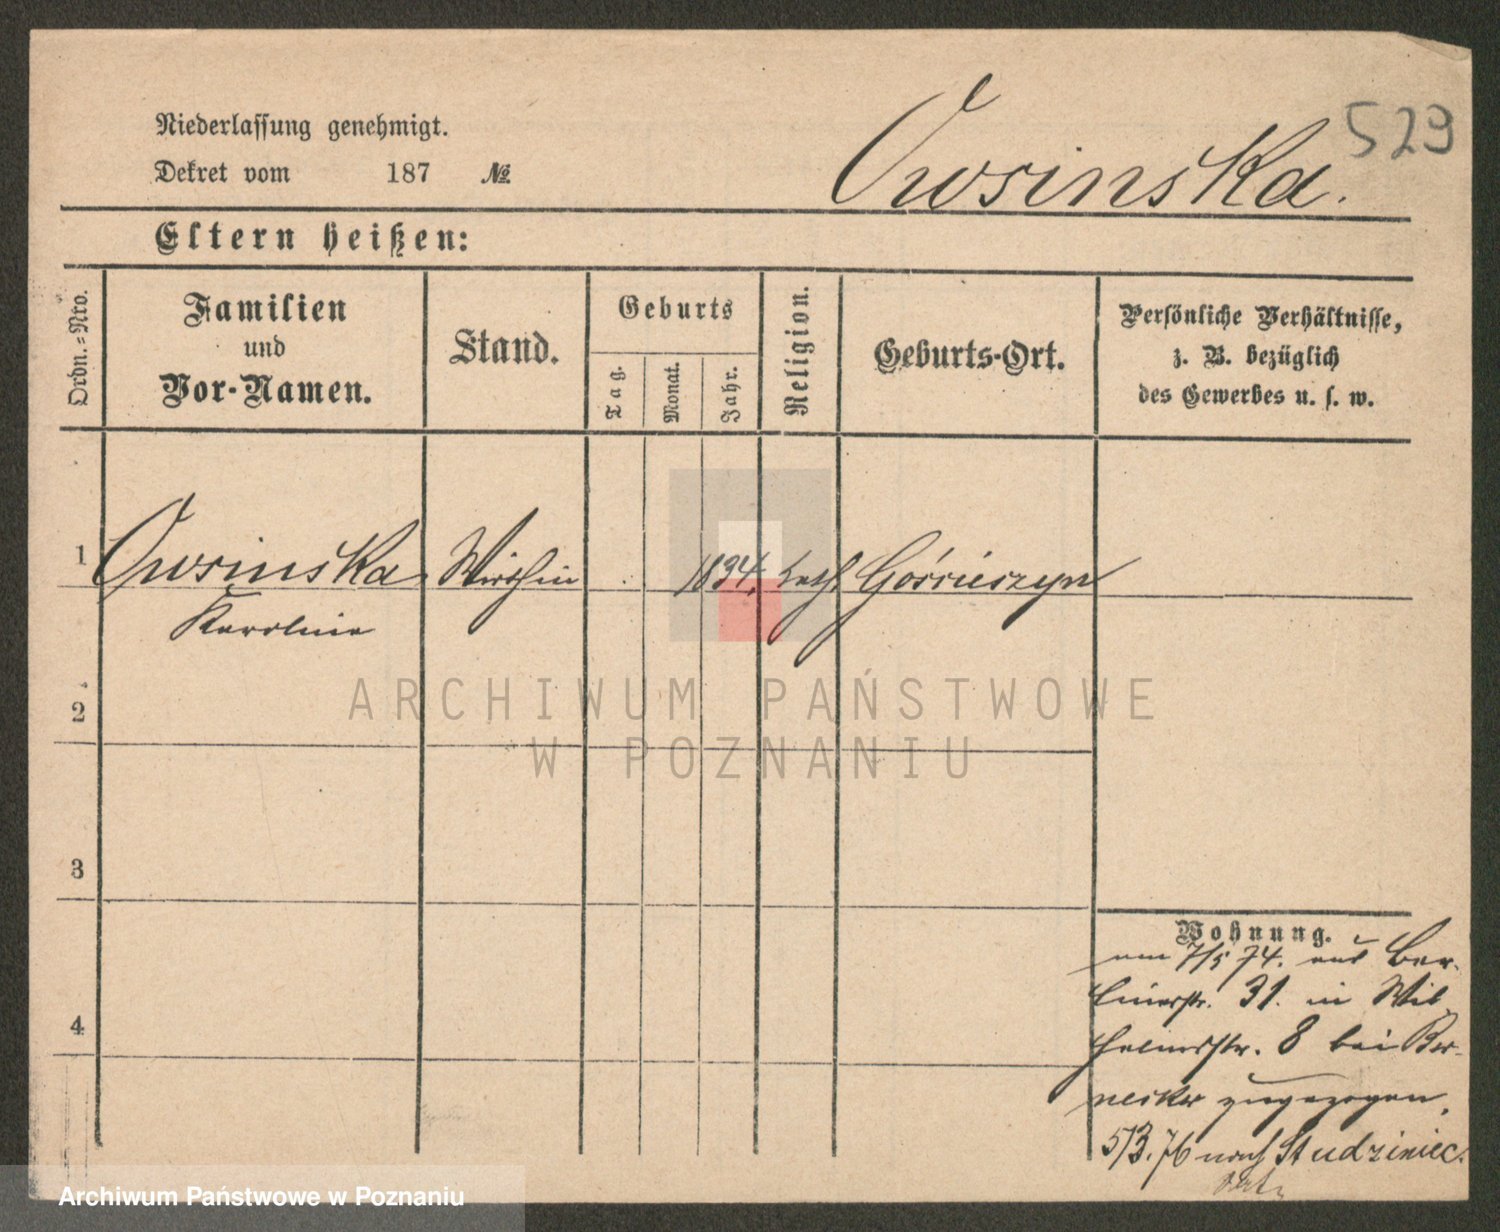 529
Owsinska.
Niederlassung genehmigt.
Dekret vom 187 №
Eltern heißen:
Ordn.=Nro.
Familien
und
Vor-Namen.
Stand.
Geburts
Tag.
Monat.
Jahr.
Religion.
Geburts-Ort.
Persönliche Verhältnisse,
z. B. bezüglich
des Gewerbes u. s. w.
1 Owsinska Wirthin 1834. kath
Karolina
2
3
4
Wohnung.
am 7/5 74. aus Ber-
linerstr. 31. in Wil-
helmsstr. 8 bei Ber-
necker zugezogen.
5/3. 76 nach Studziniec.
ARCHIWUM PAŃSTWOWE
W POZNANIU
Archiwum Państwowe w Poznaniu